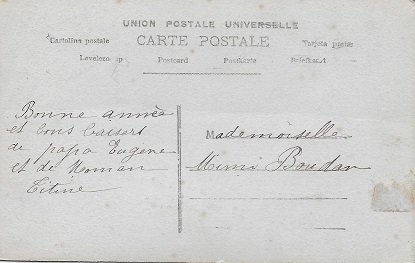 UNION POSTALE UNIVERSELLE
Cartolina postale CARTE POSTALE Tarjeta postal
Postcard Postkarte
Bonne année
et bons baisers
de papa Eugene
et de Maman
Titine
Mademoiselle
Mimi Boudan